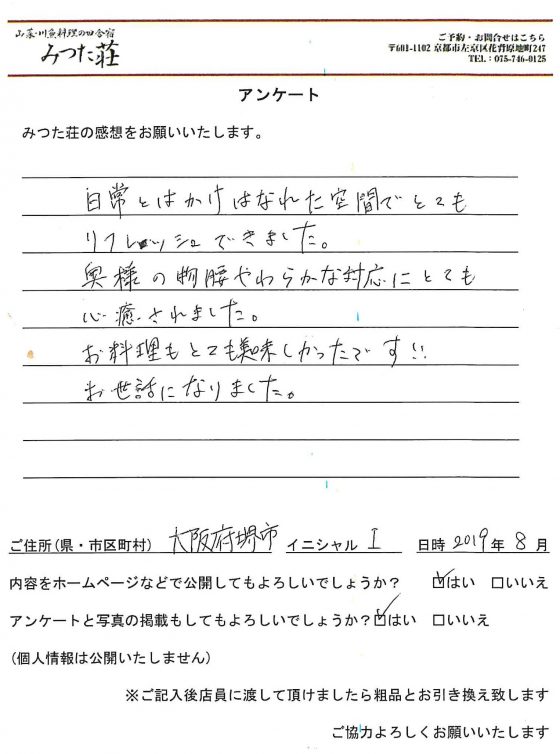 山菜・川魚料理の田舎宿
みつた荘
ご予約・お問合せはこちら
〒601-1102 京都市左京区花背原地町247
TEL：075-746-0125
アンケート
みつた荘の感想をお願いいたします。
日常とはかけはなれた空間でとても
リフレッシュできました。
奥様の物腰やわらかな対応にとても
心癒されました。
お料理もとても美味しかったです!!
お世話になりました。
ご住所(県・市区町村) 大阪府堺市 イニシャル I 日時 2019 年 8 月
内容をホームページなどで公開してもよろしいでしょうか？ ☑はい □いいえ
アンケートと写真の掲載もしてもよろしいでしょうか？☑はい □いいえ
(個人情報は公開いたしません)
※ご記入後店員に渡して頂けましたら粗品とお引き換え致します
ご協力よろしくお願いいたします